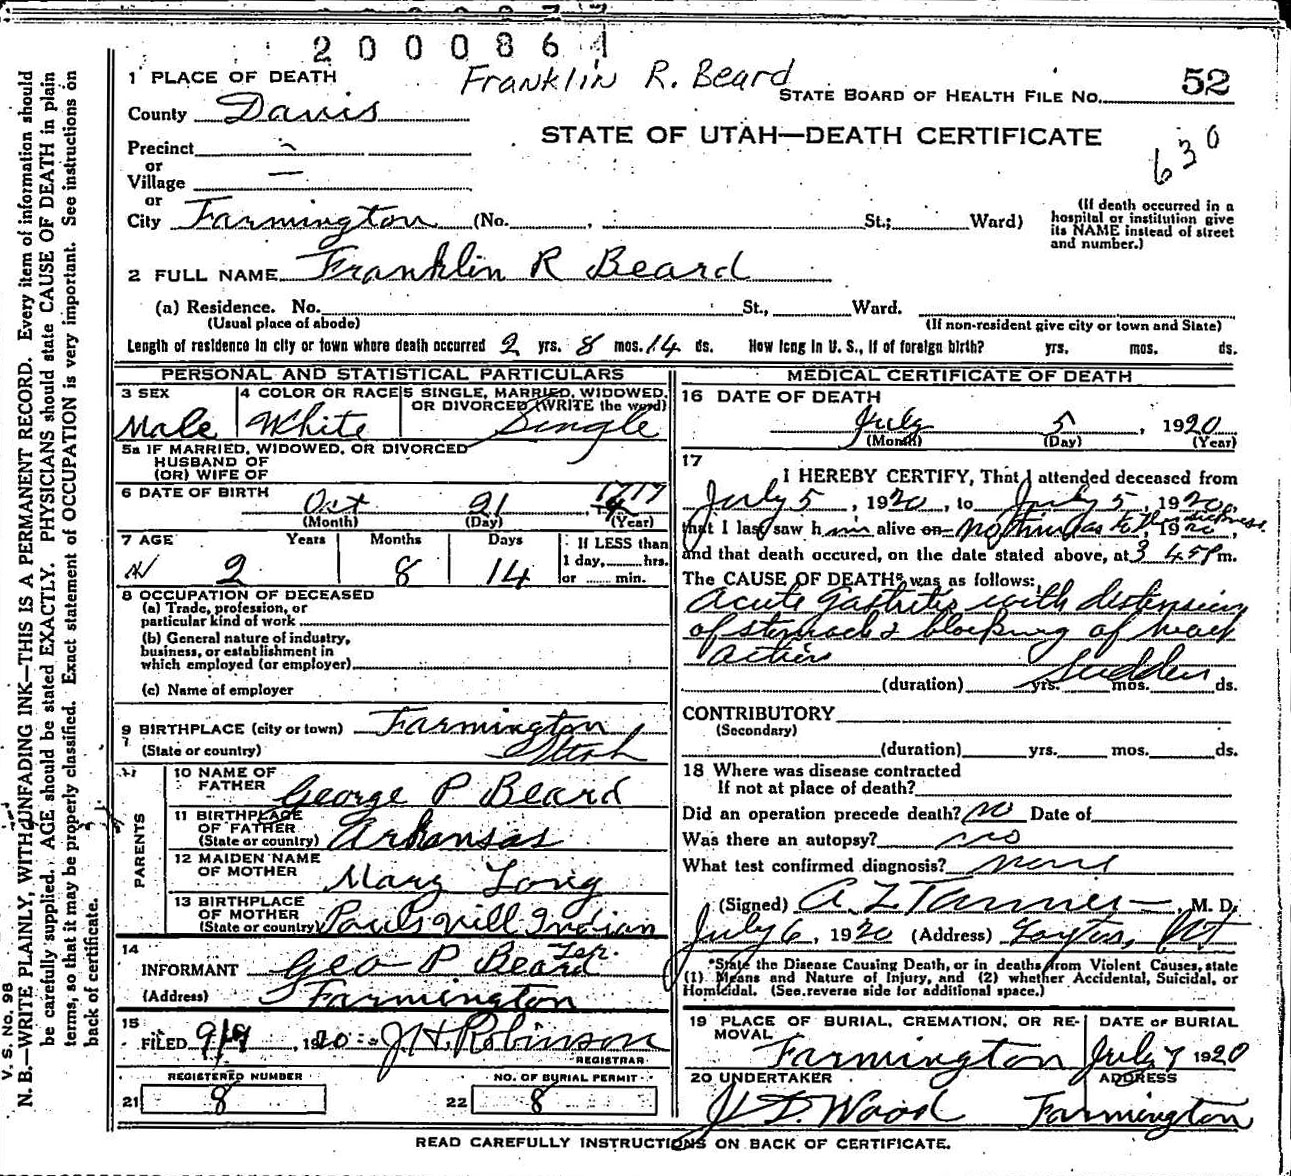 2000864
Franklin R. Beard
1 PLACE OF DEATH
STATE BOARD OF HEALTH FILE NO. 52
County Davis
STATE OF UTAH—DEATH CERTIFICATE
630
Precinct
or
Village —
or
City Farmington (No. , St.; Ward)
(If death occurred in a
hospital or institution give
its NAME instead of street
and number.)
2 FULL NAME Franklin R Beard
(a) Residence. No. St., Ward.
(Usual place of abode) (If non-resident give city or town and State)
Length of residence in city or town where death occurred 2 yrs. 8 mos. 14 ds. How long in U. S., if of foreign birth? yrs. mos. ds.
PERSONAL AND STATISTICAL PARTICULARS
3 SEX
Male
4 COLOR OR RACE
White
5 SINGLE, MARRIED, WIDOWED,
OR DIVORCED (WRITE the word)
Single
5a IF MARRIED, WIDOWED, OR DIVORCED
HUSBAND OF
(OR) WIFE OF
6 DATE OF BIRTH Oct 21 1917
(Month) (Day) (Year)
7 AGE Years Months Days
2 8 14
If LESS than
1 day, hrs.
or min.
8 OCCUPATION OF DECEASED
(a) Trade, profession, or
particular kind of work
(b) General nature of industry,
business, or establishment in
which employed (or employer)
(c) Name of employer
9 BIRTHPLACE (city or town) Farmington
(State or country) Utah
PARENTS
10 NAME OF
FATHER George P Beard
11 BIRTHPLACE
OF FATHER
(State or country) Arkansas
12 MAIDEN NAME
OF MOTHER Mary Long
13 BIRTHPLACE
OF MOTHER
(State or country) Paulsvill Indian Ter.
14
INFORMANT Geo P. Beard
(Address) Farmington
15
FILED 1920 J H Robinson
REGISTRAR
REGISTERED NUMBER NO. OF BURIAL PERMIT
21 8 22 8
MEDICAL CERTIFICATE OF DEATH
16 DATE OF DEATH
July 5, 1920
(Month) (Day) (Year)
17
I HEREBY CERTIFY, That I attended deceased from
July 5, 1920, to July 5, 1920,
that I last saw him alive on 1920,
and that death occured, on the date stated above, at 3 45 P m.
The CAUSE OF DEATH* was as follows:
Acute Gastritis with distension
of stomach & blocking of heart
action
Sudden
(duration) yrs. mos. ds.
CONTRIBUTORY
(Secondary)
(duration) yrs. mos. ds.
18 Where was disease contracted
If not at place of death?
Did an operation precede death? no Date of
Was there an autopsy? no
What test confirmed diagnosis? none
(Signed) A Z Tanner, M. D.
July 6, 1920 (Address) Layton, Ut
*State the Disease Causing Death, or in deaths from Violent Causes, state
(1) Means and Nature of Injury, and (2) whether Accidental, Suicidal, or
Homicidal. (See reverse side for additional space.)
19 PLACE OF BURIAL, CREMATION, OR RE-
MOVAL
Farmington
DATE OF BURIAL
July 7 1920
20 UNDERTAKER ADDRESS
J D Wood Farmington
READ CAREFULLY INSTRUCTIONS ON BACK OF CERTIFICATE.
V. S. No. 98
N. B.—WRITE PLAINLY, WITH UNFADING INK—THIS IS A PERMANENT RECORD. Every item of information should
be carefully supplied. AGE should be stated EXACTLY. PHYSICIANS should state CAUSE OF DEATH in plain
terms, so that it may be properly classified. Exact statement of OCCUPATION is very important. See instructions on
back of certificate.